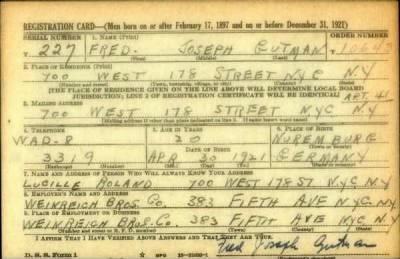 REGISTRATION CARD—(Men born on or after February 17, 1897 and on or before December 31, 1921)
SERIAL NUMBER 1. NAME (Print) ORDER NUMBER
227 FRED. JOSEPH GUTMAN 10643
(First) (Middle) (Last)
2. PLACE OF RESIDENCE (Print)
700 WEST 178 STREET N.Y.C N.Y
(Number and street) (Town, township, village, or city) (County) (State)
[THE PLACE OF RESIDENCE GIVEN ON THE LINE ABOVE WILL DETERMINE LOCAL BOARD
JURISDICTION; LINE 2 OF REGISTRATION CERTIFICATE WILL BE IDENTICAL] APT. 41
3. MAILING ADDRESS
700 WEST 178 STREET NYC N.Y
[Mailing address if other than place indicated on line 2. If same insert word same]
4. TELEPHONE 5. AGE IN YEARS 6. PLACE OF BIRTH
WAD-8 20 NUREMBURG
DATE OF BIRTH (Town or county)
3319 APR 30 1921 GERMANY
(Exchange) (Number) (Mo.) (Day) (Yr.) (State or country)
7. NAME AND ADDRESS OF PERSON WHO WILL ALWAYS KNOW YOUR ADDRESS
LUCILLE ROLAND 700 WEST 178 ST N.Y.C. N.Y.
8. EMPLOYER'S NAME AND ADDRESS
WEINREICH BROS. CO. 383 FIFTH AVE NYC N.Y.
9. PLACE OF EMPLOYMENT OR BUSINESS
WEINREICH BROS. CO. 383 FIFTH AVE NYC N.Y.
(Number and street or R. F. D. number) (Town) (County) (State)
I AFFIRM THAT I HAVE VERIFIED ABOVE ANSWERS AND THAT THEY ARE TRUE.
D. S. S. Form 1 GPO Fred Joseph Gutman